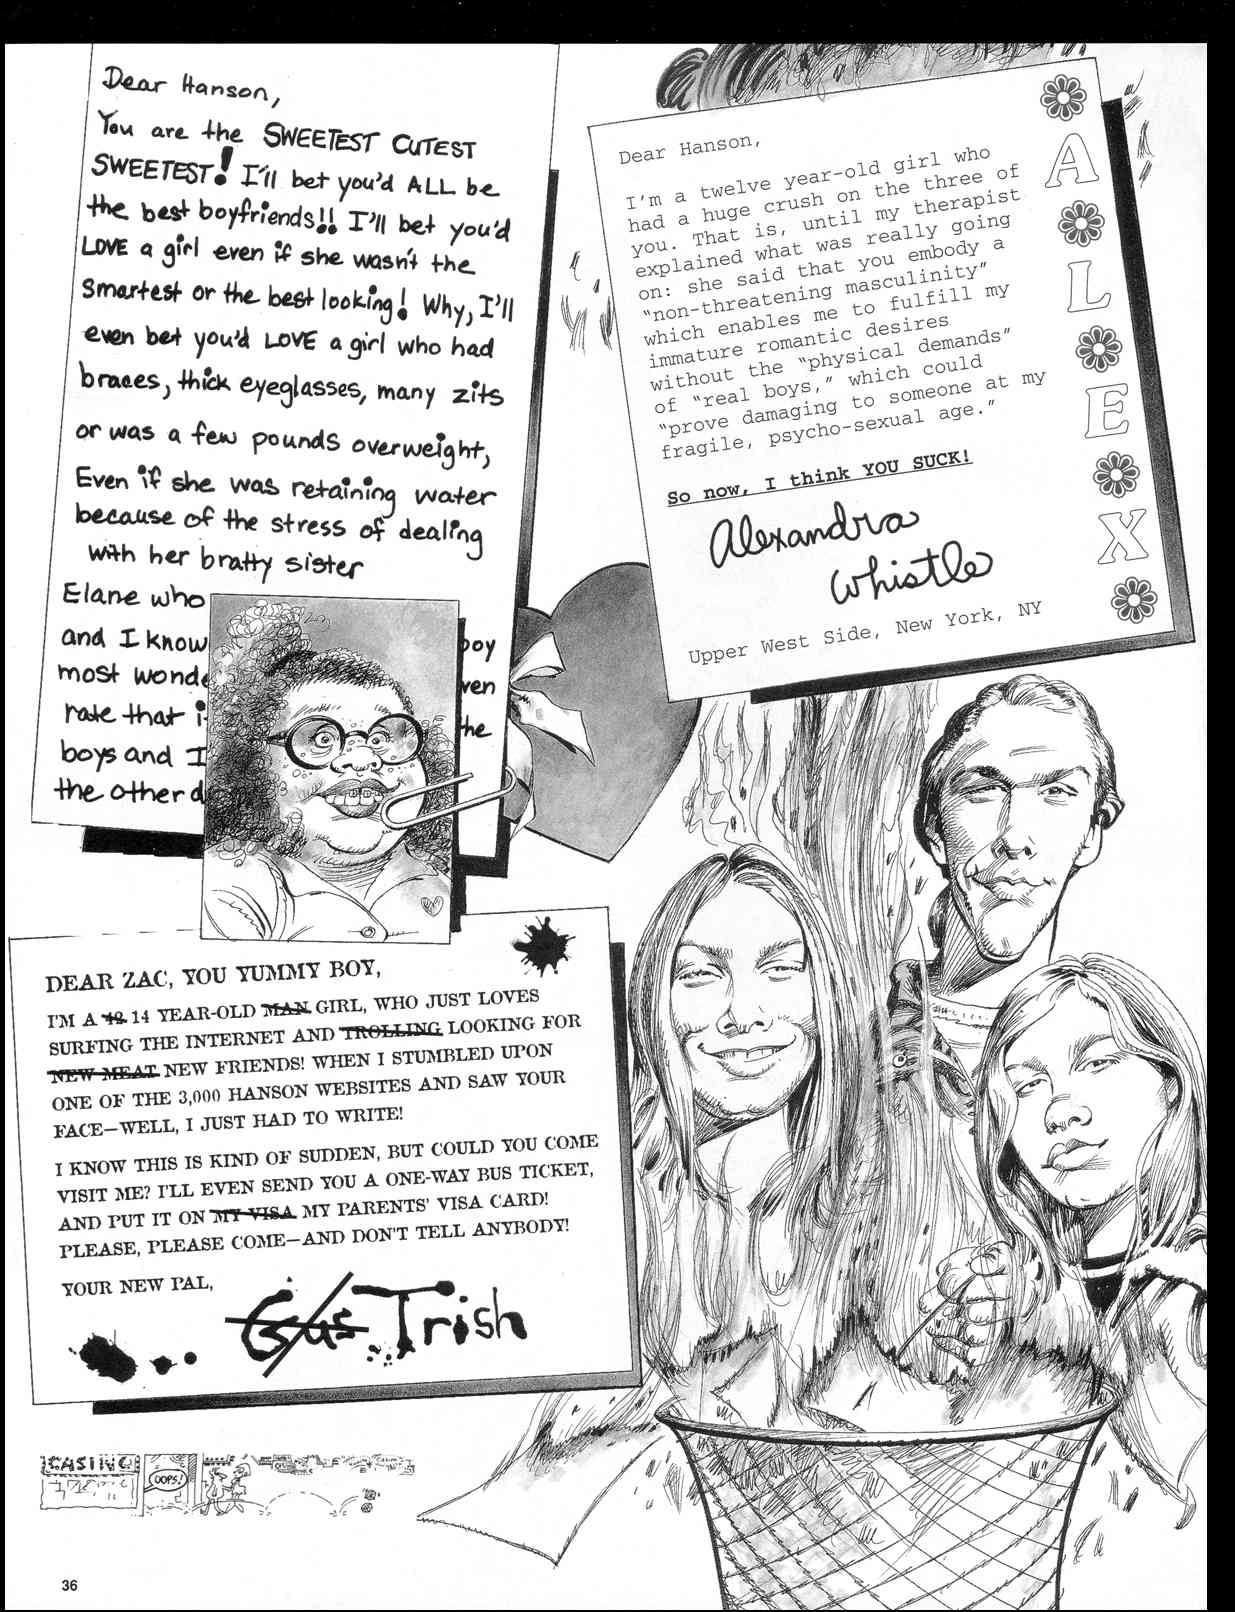 Dear Hanson,
You are the SWEETEST CUTEST
SWEETEST! I'll bet you'd ALL be
the best boyfriends!! I'll bet you'd
LOVE a girl even if she wasn't the
Smartest or the best looking! Why, I'll
even bet you'd LOVE a girl who had
braces, thick eyeglasses, many zits
or was a few pounds overweight,
Even if she was retaining water
because of the stress of dealing
with her bratty sister
Elane who
and I know boy
most wonde ven
rate that i he
boys and I
the other d
Dear Hanson,
I'm a twelve year-old girl who
had a huge crush on the three of
you. That is, until my therapist
explained what was really going
on: she said that you embody a
"non-threatening masculinity"
which enables me to fulfill my
immature romantic desires
without the "physical demands"
of "real boys," which could
"prove damaging to someone at my
fragile, psycho-sexual age."
So now, I think YOU SUCK!
Alexandra
Whistle
Upper West Side, New York, NY
ALEX
DEAR ZAC, YOU YUMMY BOY,
I'M A 42 14 YEAR-OLD MAN GIRL, WHO JUST LOVES
SURFING THE INTERNET AND TROLLING LOOKING FOR
NEW MEAT NEW FRIENDS! WHEN I STUMBLED UPON
ONE OF THE 3,000 HANSON WEBSITES AND SAW YOUR
FACE—WELL, I JUST HAD TO WRITE!
I KNOW THIS IS KIND OF SUDDEN, BUT COULD YOU COME
VISIT ME? I'LL EVEN SEND YOU A ONE-WAY BUS TICKET,
AND PUT IT ON MY VISA MY PARENTS' VISA CARD!
PLEASE, PLEASE COME—AND DON'T TELL ANYBODY!
YOUR NEW PAL,
Gus Trish
CASINO
OOPS!
36